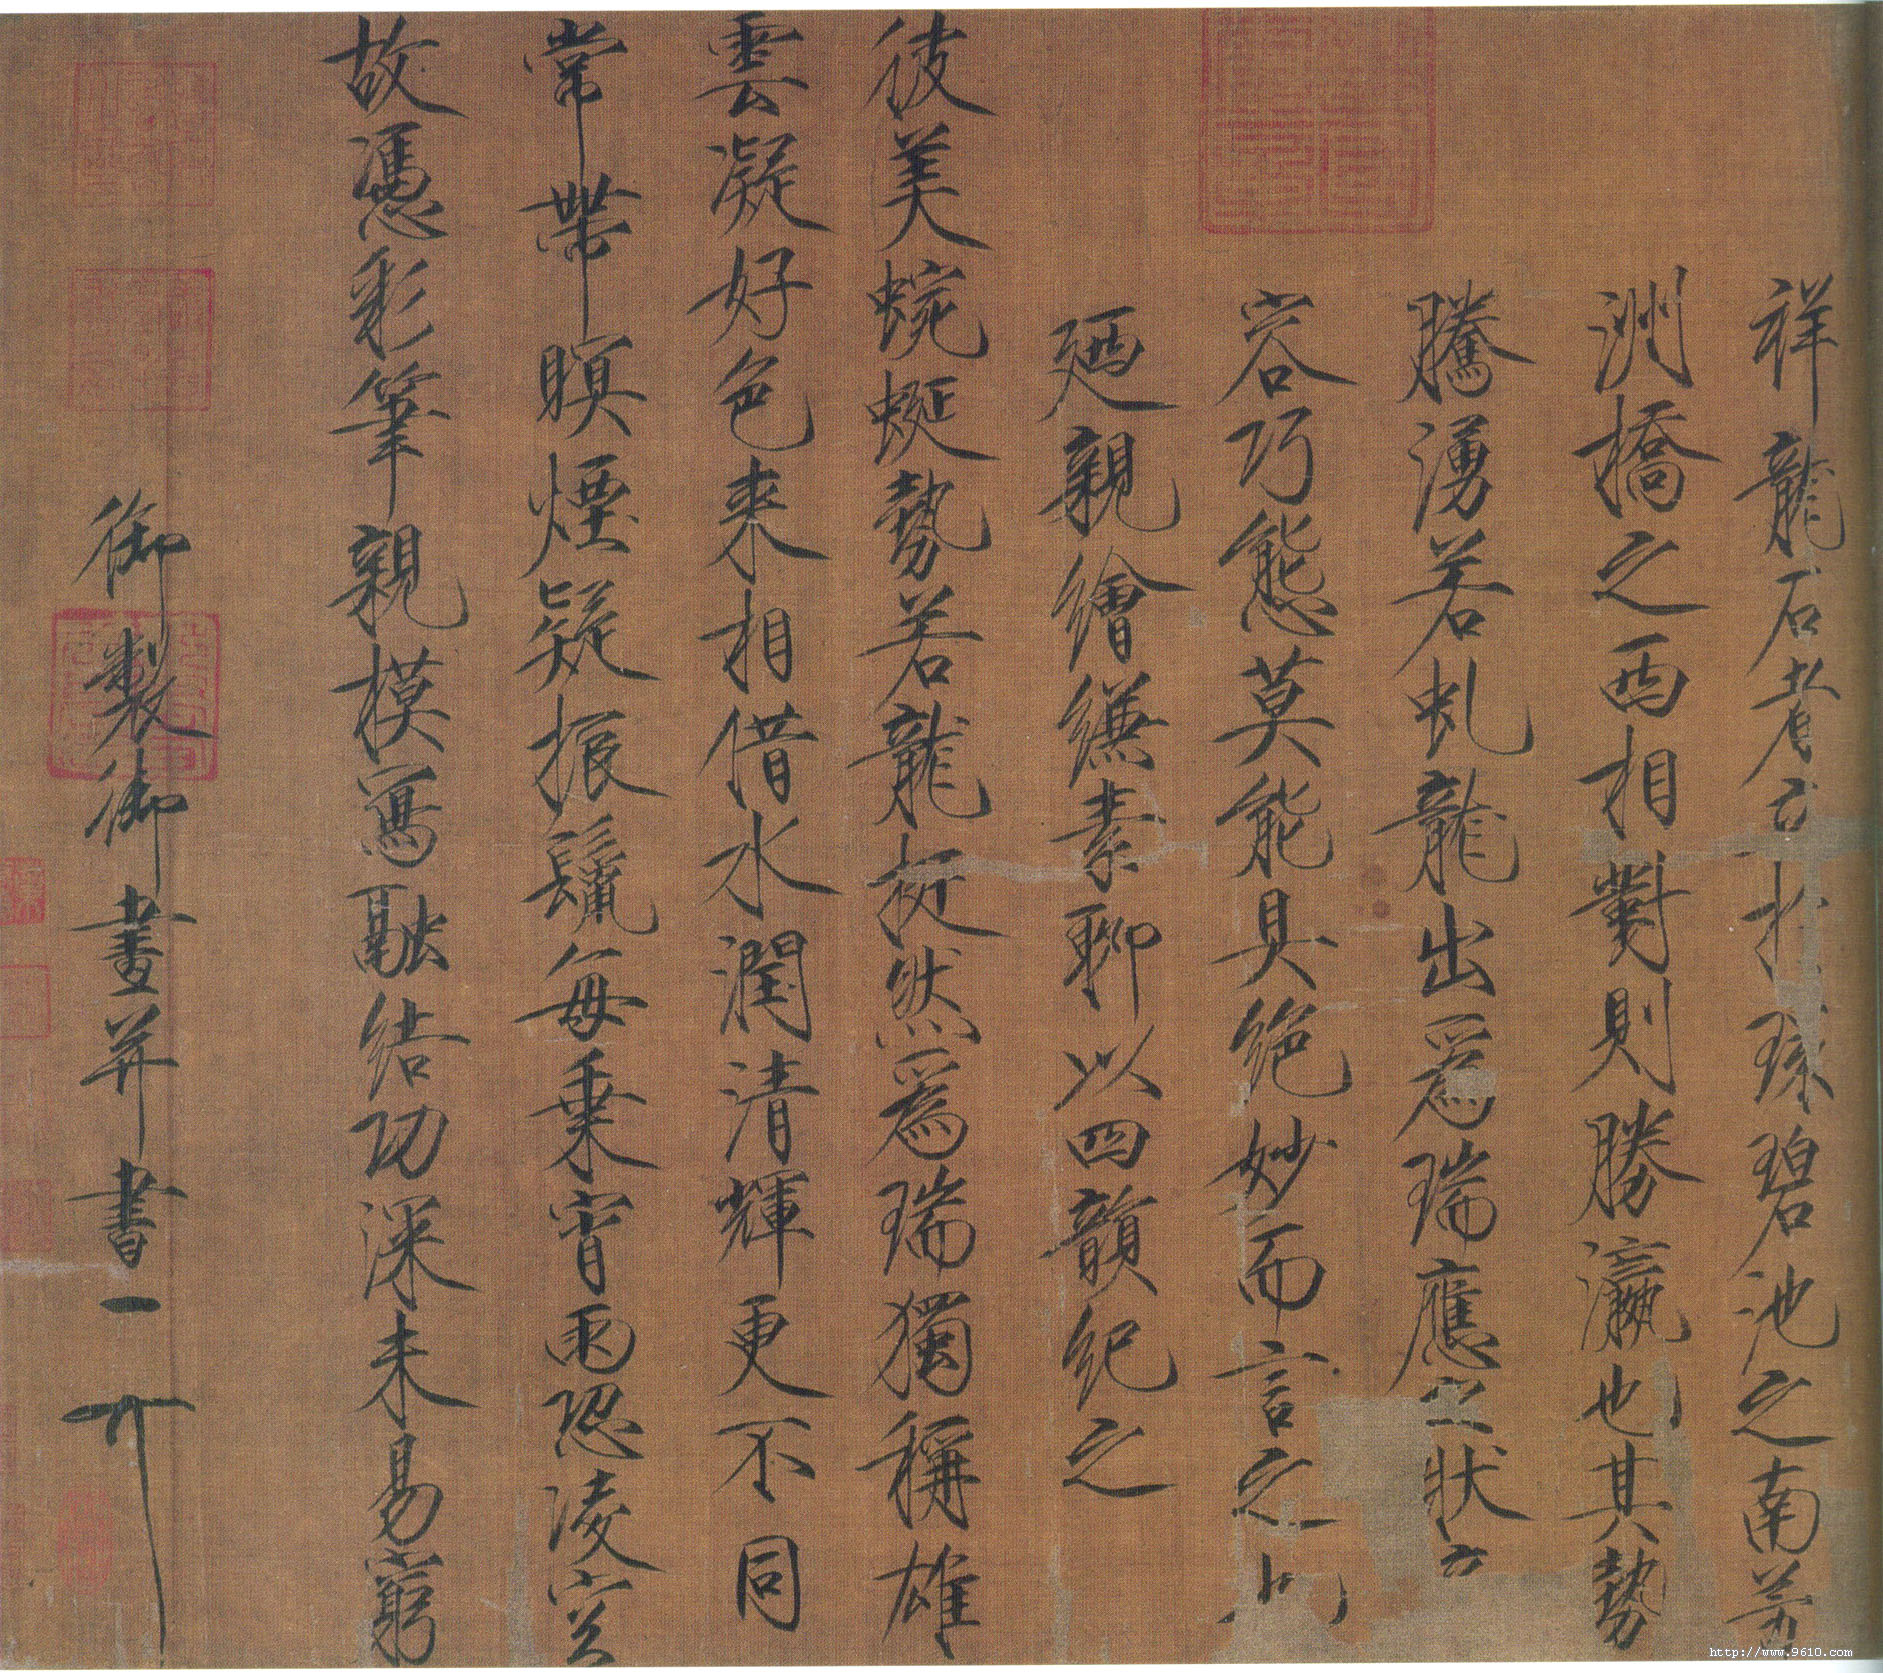 祥龍石者立於環碧池之南芳
洲橋之西相對則勝瀛也其勢
騰湧若虬龍出爲瑞應之狀奇
容巧態莫能具絶妙而言之也
廼親繪縑素聊以四韻紀之
彼美蜿蜒勢若龍挺然爲瑞獨稱雄
雲凝好色來相借水潤清輝更不同
常帶暝煙疑振鬣每乗宵雨恐凌空
故憑彩筆親模寫融結功深未易窮
御製御畫并書
http://www.9610.com